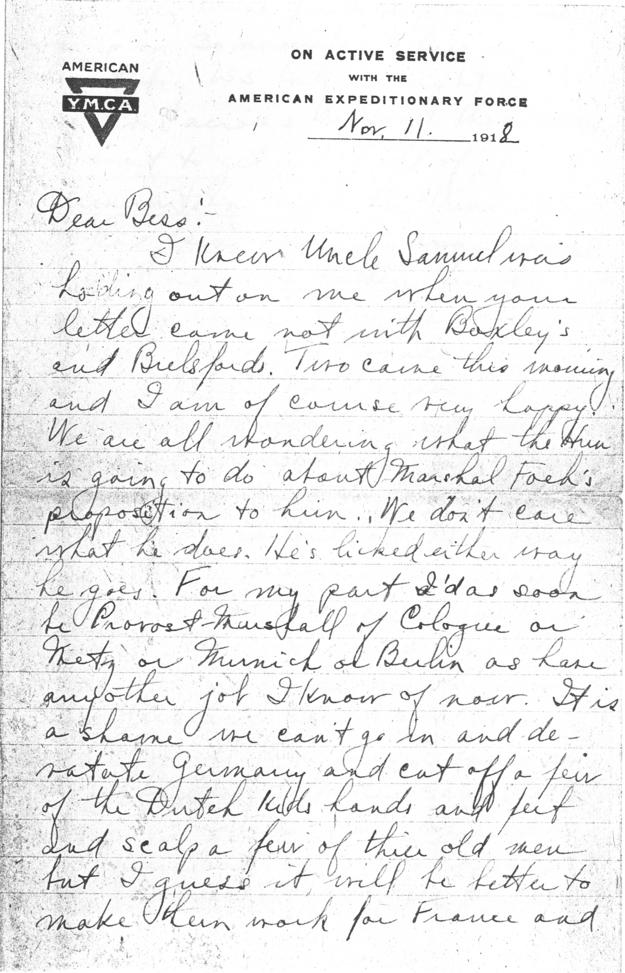 AMERICAN
Y.M.C.A.
ON ACTIVE SERVICE
WITH THE
AMERICAN EXPEDITIONARY FORCE
Nov, 11. 1918
Dear Bess:-
I knew Uncle Samuel was
holding out on me when your
letter came not with Boxley's
and Brelsfords. Two came this morning
and I am of course very happy.
We are all wondering what the Hun
is going to do about Marshal Foch's
proposition to him. We don't care
what he does. He's licked either way
he goes. For my part I'd as soon
be Provost Marshall of Cologne or
Metz or Munich or Berlin as have
any other job I know of now. It is
a shame we can't go in and de-
vatate Germany and cut off a few
of the Dutch kids hands and feet
and scalp a few of thier old men
but I guess it will be better to
make them work for France and